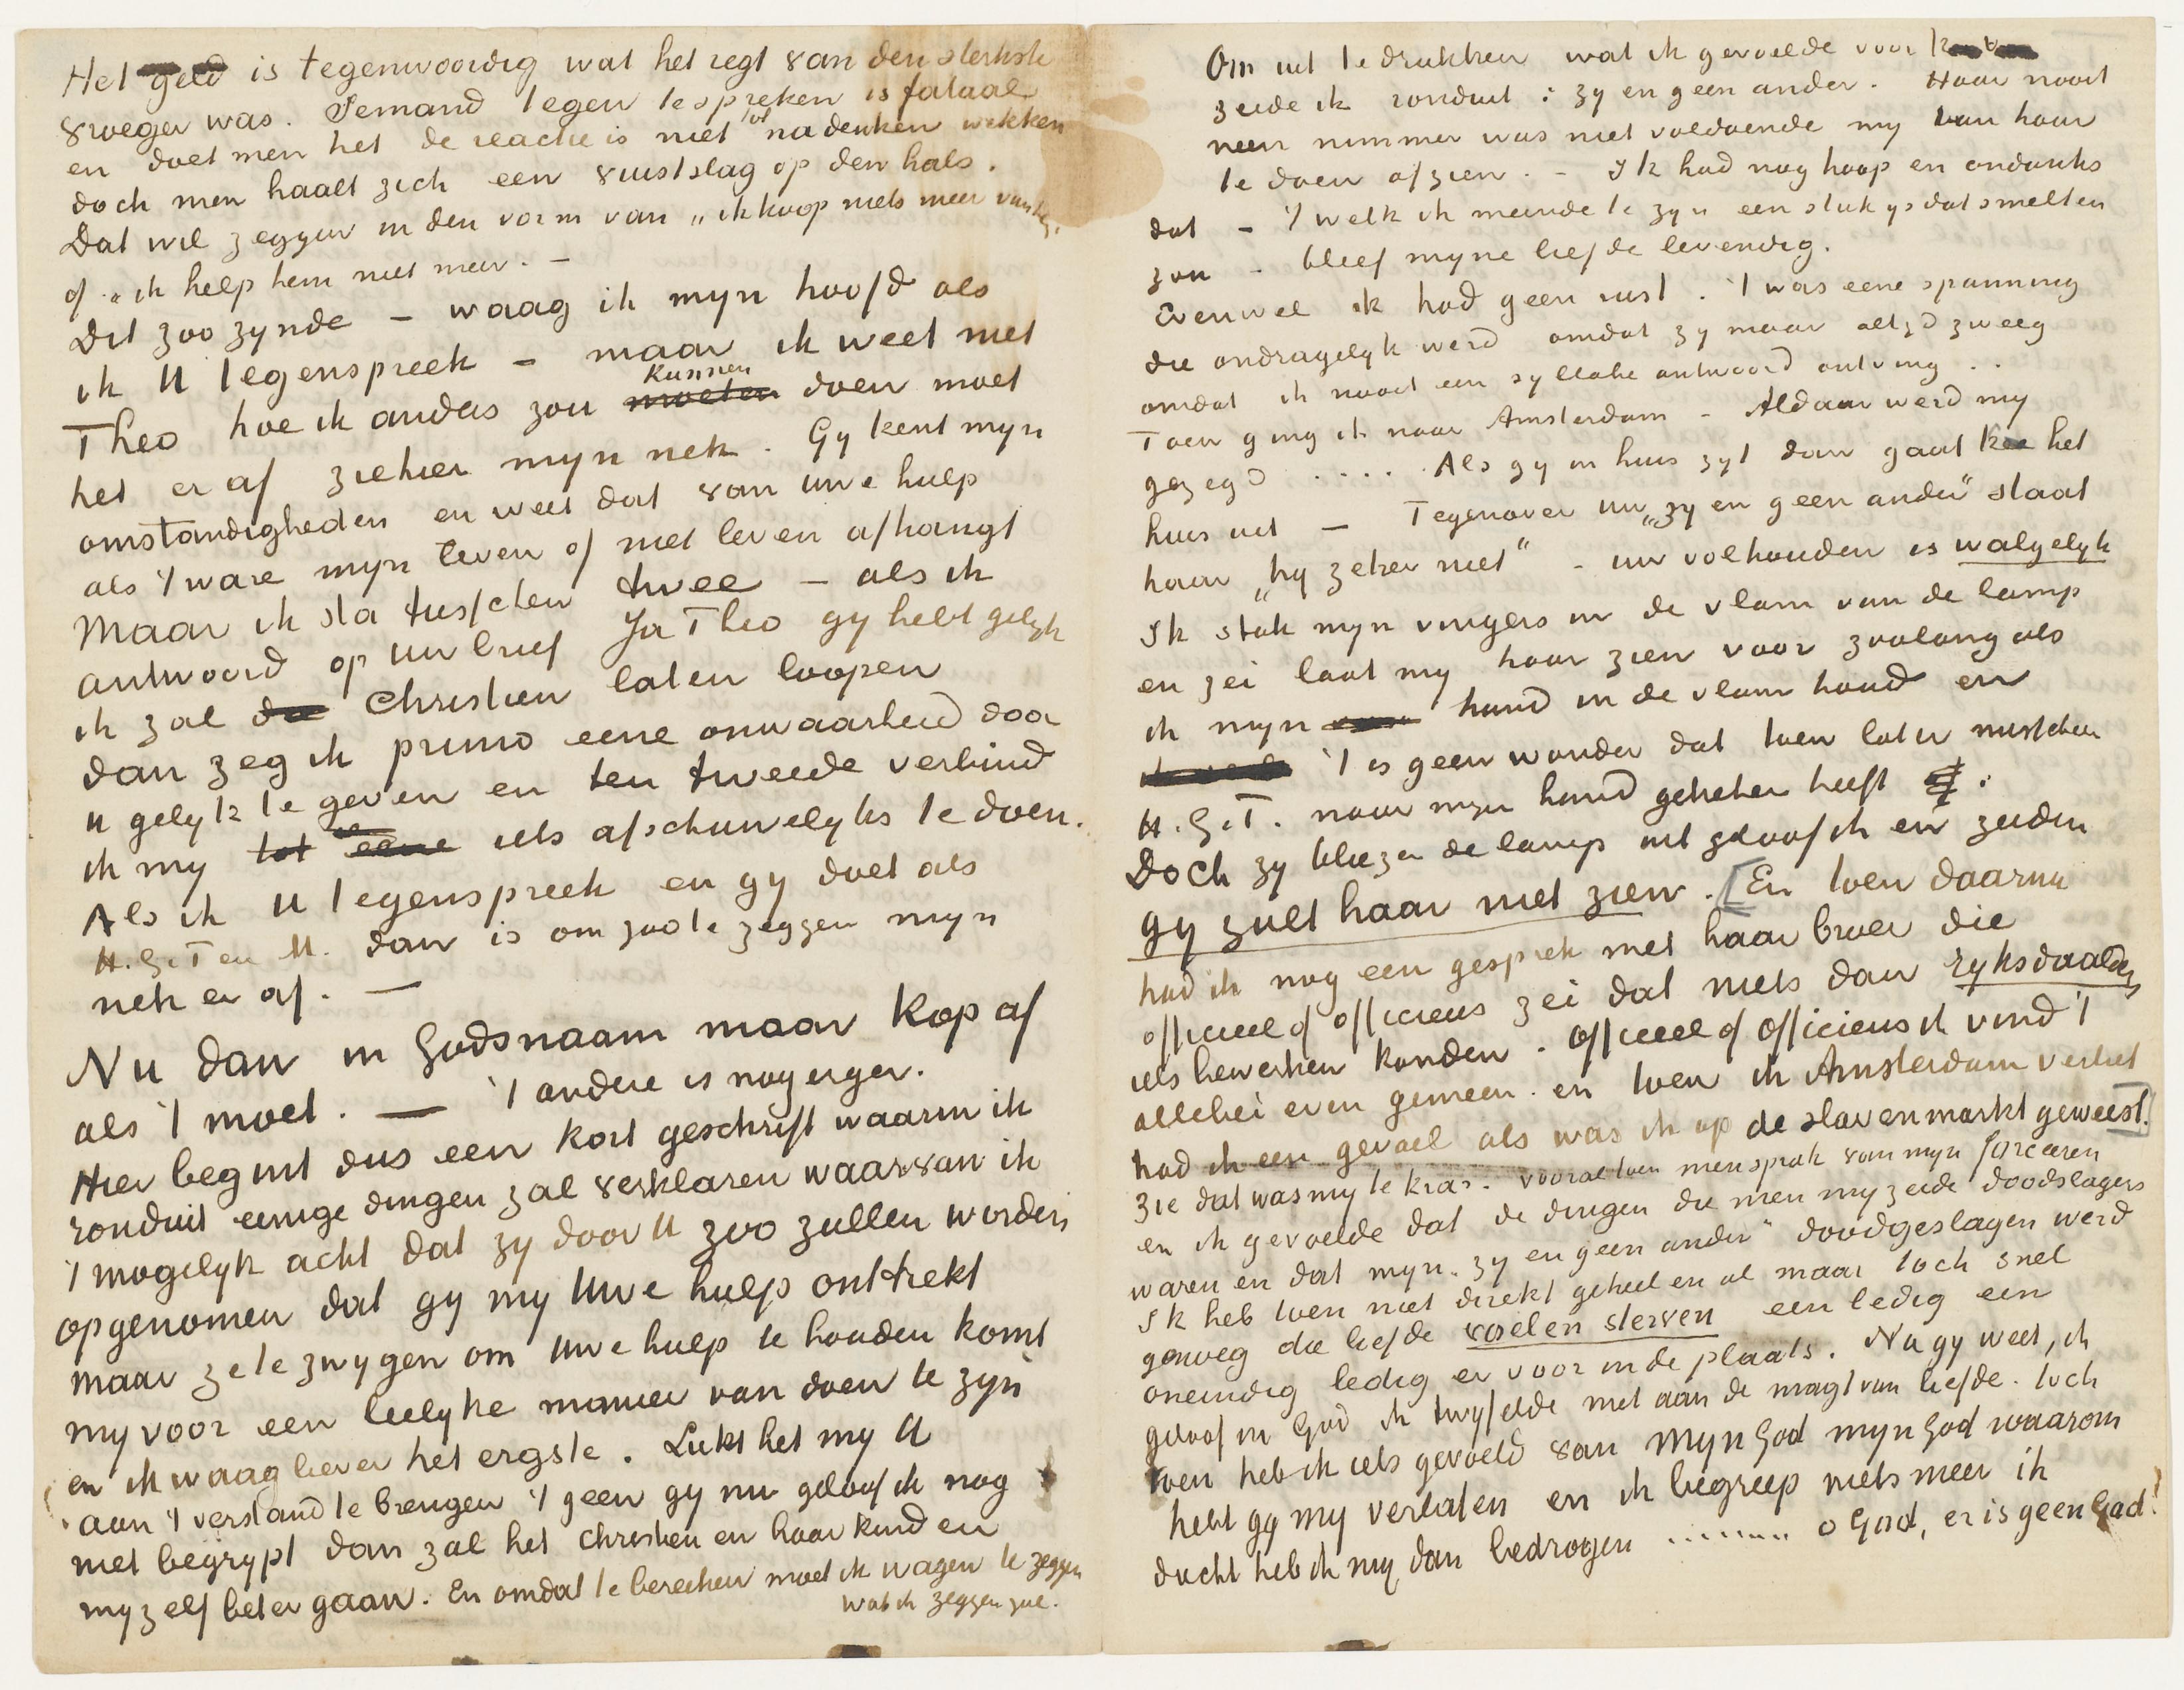 Het geld is tegenwoordig wat het regt van den sterkste
vroeger was. Iemand tegen te spreken is fataal
en doet men het de reactie is niet tot nadenken wekken
doch men haalt zich een vuistslag op den hals.
Dat wil zeggen in den vorm van „ik koop niets meer van hem"
of „ik help hem niet meer. –
Dit zoo zynde – waag ik myn hoofd als
ik U tegenspreek – maar ik weet niet
Theo hoe ik anders zou moeten kunnen doen moet
het er af ziehier myn nek. Gy kent myn
omstandigheden en weet dat van uwe hulp
als 't ware myn leven of niet leven afhangt
Maar ik sta tusschen twee – als ik
antwoord op uw brief Ja Theo gy hebt gelyk
ik zal die Christien laten loopen
dan zeg ik primo eene onwaarheid door
u gelyk te geven en ten tweede verbind
ik my tot eene iets afschuwelyks te doen.
Als ik U tegenspreek en gy doet als
H.G.T en M. dan is om zoo te zeggen myn
nek er af. —
Nu dan in Godsnaam maar kop af
als 't moet. — 't andere is nog erger.
Hier begint dus een kort geschrift waarin ik
ronduit eenige dingen zal verklaren waarvan ik
't mogelyk acht dat zy door U zoo zullen worden
opgenomen dat gy my Uwe hulp onttrekt
maar ze te zwygen om Uwe hulp te houden komt
my voor een leelyke manier van doen te zyn
en ik waag liever het ergste. Lukt het my U
aan 't verstand te brengen 't geen gy nu geloof ik nog
niet begrypt dan zal het Christien en haar kind en
myzelf beter gaan. En om dat te bereiken moet ik wagen te zeggen
wat ik zeggen zal.
Om uit te drukken wat ik gevoelde voor
zeide ik ronduit: zy en geen ander. Haar nooit
neen nimmer was niet voldoende my van haar
te doen afzien. – Ik had nog hoop en ondanks
dat – 't welk ik meende te zyn een stuk ys dat smelten
zou – bleef myne liefde levendig.
Evenwel ik had geen rust. 't was eene spanning
die ondragelyk werd omdat zy maar altyd zweeg
omdat ik nooit een syllabe antwoord ontving ..
Toen ging ik naar Amsterdam – Aldaar werd my
gezegd ..... Als gy in huis zyt dan gaat Kee het
huis uit – Tegenover uw „zy en geen ander" staat
haar „hy zeker niet" – uw volhouden is walgelyk
Ik stak myn vingers in de vlam van de lamp
en zei laat my haar zien voor zoolang als
ik myn hand in de vlam houd en
't is geen wonder dat toen later misschien
H.G.T. naar myn hand gekeken heeft.
Doch zy bliezen de lamp uit geloof ik en zeiden
gy zult haar niet zien. [En toen daarna
had ik nog een gesprek met haar broer die
officieel of officieus zei dat niets dan ryksdaalders
iets bewerken konden. officieel of officieus ik vind 't
allebei even gemeen. en toen ik Amsterdam verliet
had ik een gevoel als was ik op de slavenmarkt geweest.]
Zie dat was my te kras. vooral toen men sprak van myn forceeren
en ik gevoelde dat de dingen die men my zeide doodslagers
waren en dat myn „zy en geen ander" doodgeslagen werd
Ik heb toen niet direkt geheel en al maar toch snel
genoeg die liefde voelen sterven een ledig een
oneindig ledig er voor in de plaats. Nu gy weet, ik
geloof in God ik twyfelde niet aan de magt van liefde. toch
toen heb ik iets gevoeld van Myn God myn God waarom
hebt gy my verlaten en ik begreep niets meer ik
dacht heb ik my dan bedrogen ........ o God, er is geen God!